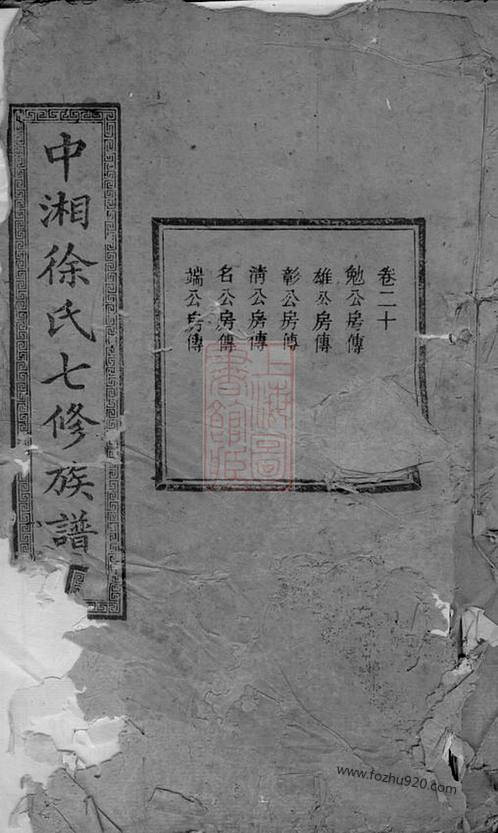 中湘徐氏七修族譜
卷二十
勉公房傳
雄公房傳
彰公房傳
清公房傳
名公房傳
端公房傳
上海圖書館藏
www.fozhu920.com